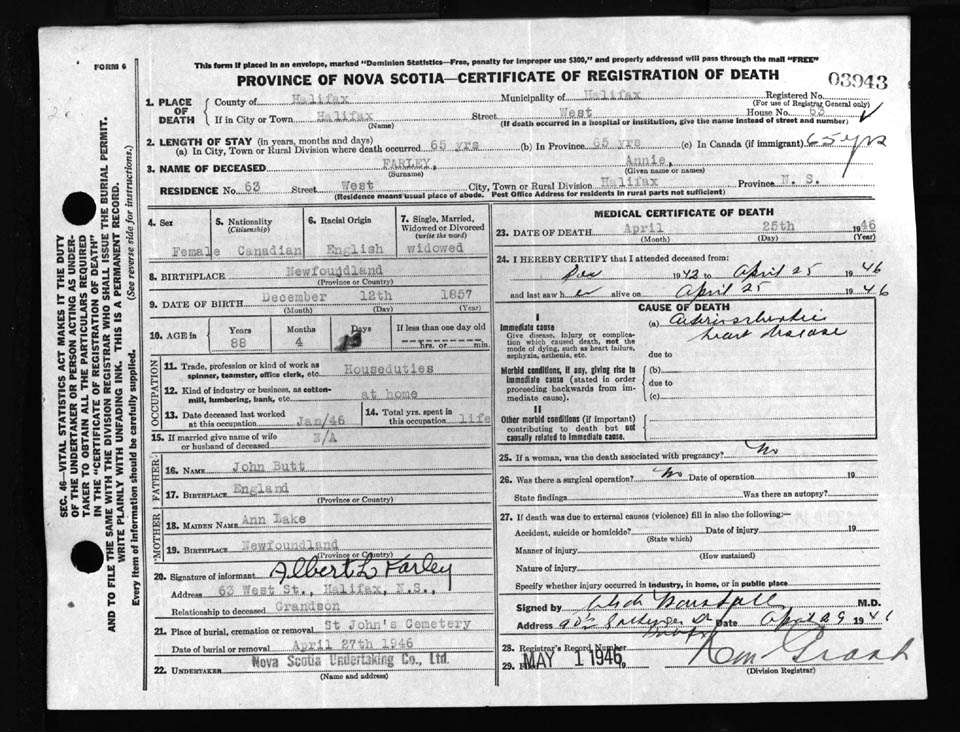 FORM 6
This form if placed in an envelope, marked "Dominion Statistics—Free, penalty for improper use $300," and properly addressed will pass through the mail "FREE"
PROVINCE OF NOVA SCOTIA—CERTIFICATE OF REGISTRATION OF DEATH
03943
1. PLACE OF DEATH
County of Halifax Municipality of Halifax Registered No.
(For use of Registrar General only)
If in City or Town Halifax Street West House No. 63
(Name) (If death occurred in a hospital or institution, give the name instead of street and number)
2. LENGTH OF STAY (in years, months and days)
(a) In City, Town or Rural Division where death occurred 65 yrs (b) In Province 65 yrs (c) In Canada (if immigrant) 65 yrs
3. NAME OF DECEASED FARLEY, Annie,
(Surname) (Given name or names)
RESIDENCE No. 63 Street West City, Town or Rural Division Halifax Province N. S.
(Residence means usual place of abode. Post Office Address for residents in rural parts not sufficient)
SEC. 46—VITAL STATISTICS ACT MAKES IT THE DUTY
OF THE UNDERTAKER OR PERSON ACTING AS UNDER-
TAKER TO OBTAIN ALL THE PARTICULARS REQUIRED
IN THE "CERTIFICATE OF REGISTRATION OF DEATH"
AND TO FILE THE SAME WITH THE DIVISION REGISTRAR WHO SHALL ISSUE THE BURIAL PERMIT.
WRITE PLAINLY WITH UNFADING INK. THIS IS A PERMANENT RECORD.
Every item of information should be carefully supplied. (See reverse side for instructions.)
4. Sex
Female
5. Nationality
(Citizenship)
Canadian
6. Racial Origin
English
7. Single, Married,
Widowed or Divorced
(write the word)
widowed
8. BIRTHPLACE Newfoundland
(Province or Country)
9. DATE OF BIRTH December 12th 1857
(Month) (Day) (Year)
10. AGE in
Years Months Days If less than one day old
88 4 13 hrs. or min.
OCCUPATION
11. Trade, profession or kind of work as
spinner, teamster, office clerk, etc. Houseduties
12. Kind of industry or business, as cotton-
mill, lumbering, bank, etc. at home
13. Date deceased last worked
at this occupation Jan/46
14. Total yrs. spent in
this occupation life
15. If married give name of wife
or husband of deceased N/A
FATHER
16. NAME John Butt
17. BIRTHPLACE England
(Province or Country)
MOTHER
18. MAIDEN NAME Ann Lake
19. BIRTHPLACE Newfoundland
(Province or Country)
20. Signature of informant Albert L Farley
Address 63 West St., Halifax, N.S.,
Relationship to deceased Grandson
21. Place of burial, cremation or removal St John's Cemetery
Date of burial or removal April 27th 1946
22. UNDERTAKER Nova Scotia Undertaking Co., Ltd.
(Name and address)
MEDICAL CERTIFICATE OF DEATH
23. DATE OF DEATH April 25th 1946
(Month) (Day) (Year)
24. I HEREBY CERTIFY that I attended deceased from:
Dec 1942 to April 25 1946
and last saw her alive on April 25 1946
CAUSE OF DEATH
I
Immediate cause
Give disease, injury or complica-
tion which caused death, not the
mode of dying, such as heart failure,
asphyxia, asthenia, etc.
(a)
heart disease
due to
Morbid conditions, if any, giving rise to
immediate cause (stated in order
proceeding backwards from im-
mediate cause).
(b)
due to
(c)
II
Other morbid conditions (if important)
contributing to death but not
causally related to immediate cause.
25. If a woman, was the death associated with pregnancy? No
26. Was there a surgical operation? No Date of operation 19
State findings Was there an autopsy?
27. If death was due to external causes (violence) fill in also the following:—
Accident, suicide or homicide? Date of injury 19
(State which)
Manner of injury
(How sustained)
Nature of injury
Specify whether injury occurred in industry, in home, or in public place
Signed by M.D.
Address Date April 29 1946
28. Registrar's Record Number
29. MAY 1 1946
(Division Registrar)